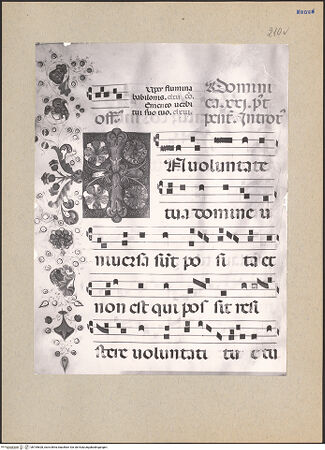 210v
Upr flumina
babilonis. ctui. co.
Emento uerbi
tui suo tuo. ctui.
Domini
ca. xxj. pt
off.
pent. Introit
N uoluntate
tua domine u
niuersa sūt po si ta et
non est qui pos sit resi
stere uoluntati tu e tu